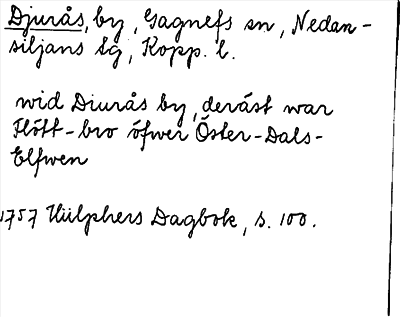 Djurås, by, Gagnefs sn, Nedan-
siljans tg, Kopp. l.
wid Diurås by, deräst war
Flött-bro öfwer Öster-Dals-
Elfwen
1757 Hülphers Dagbok, s. 100.